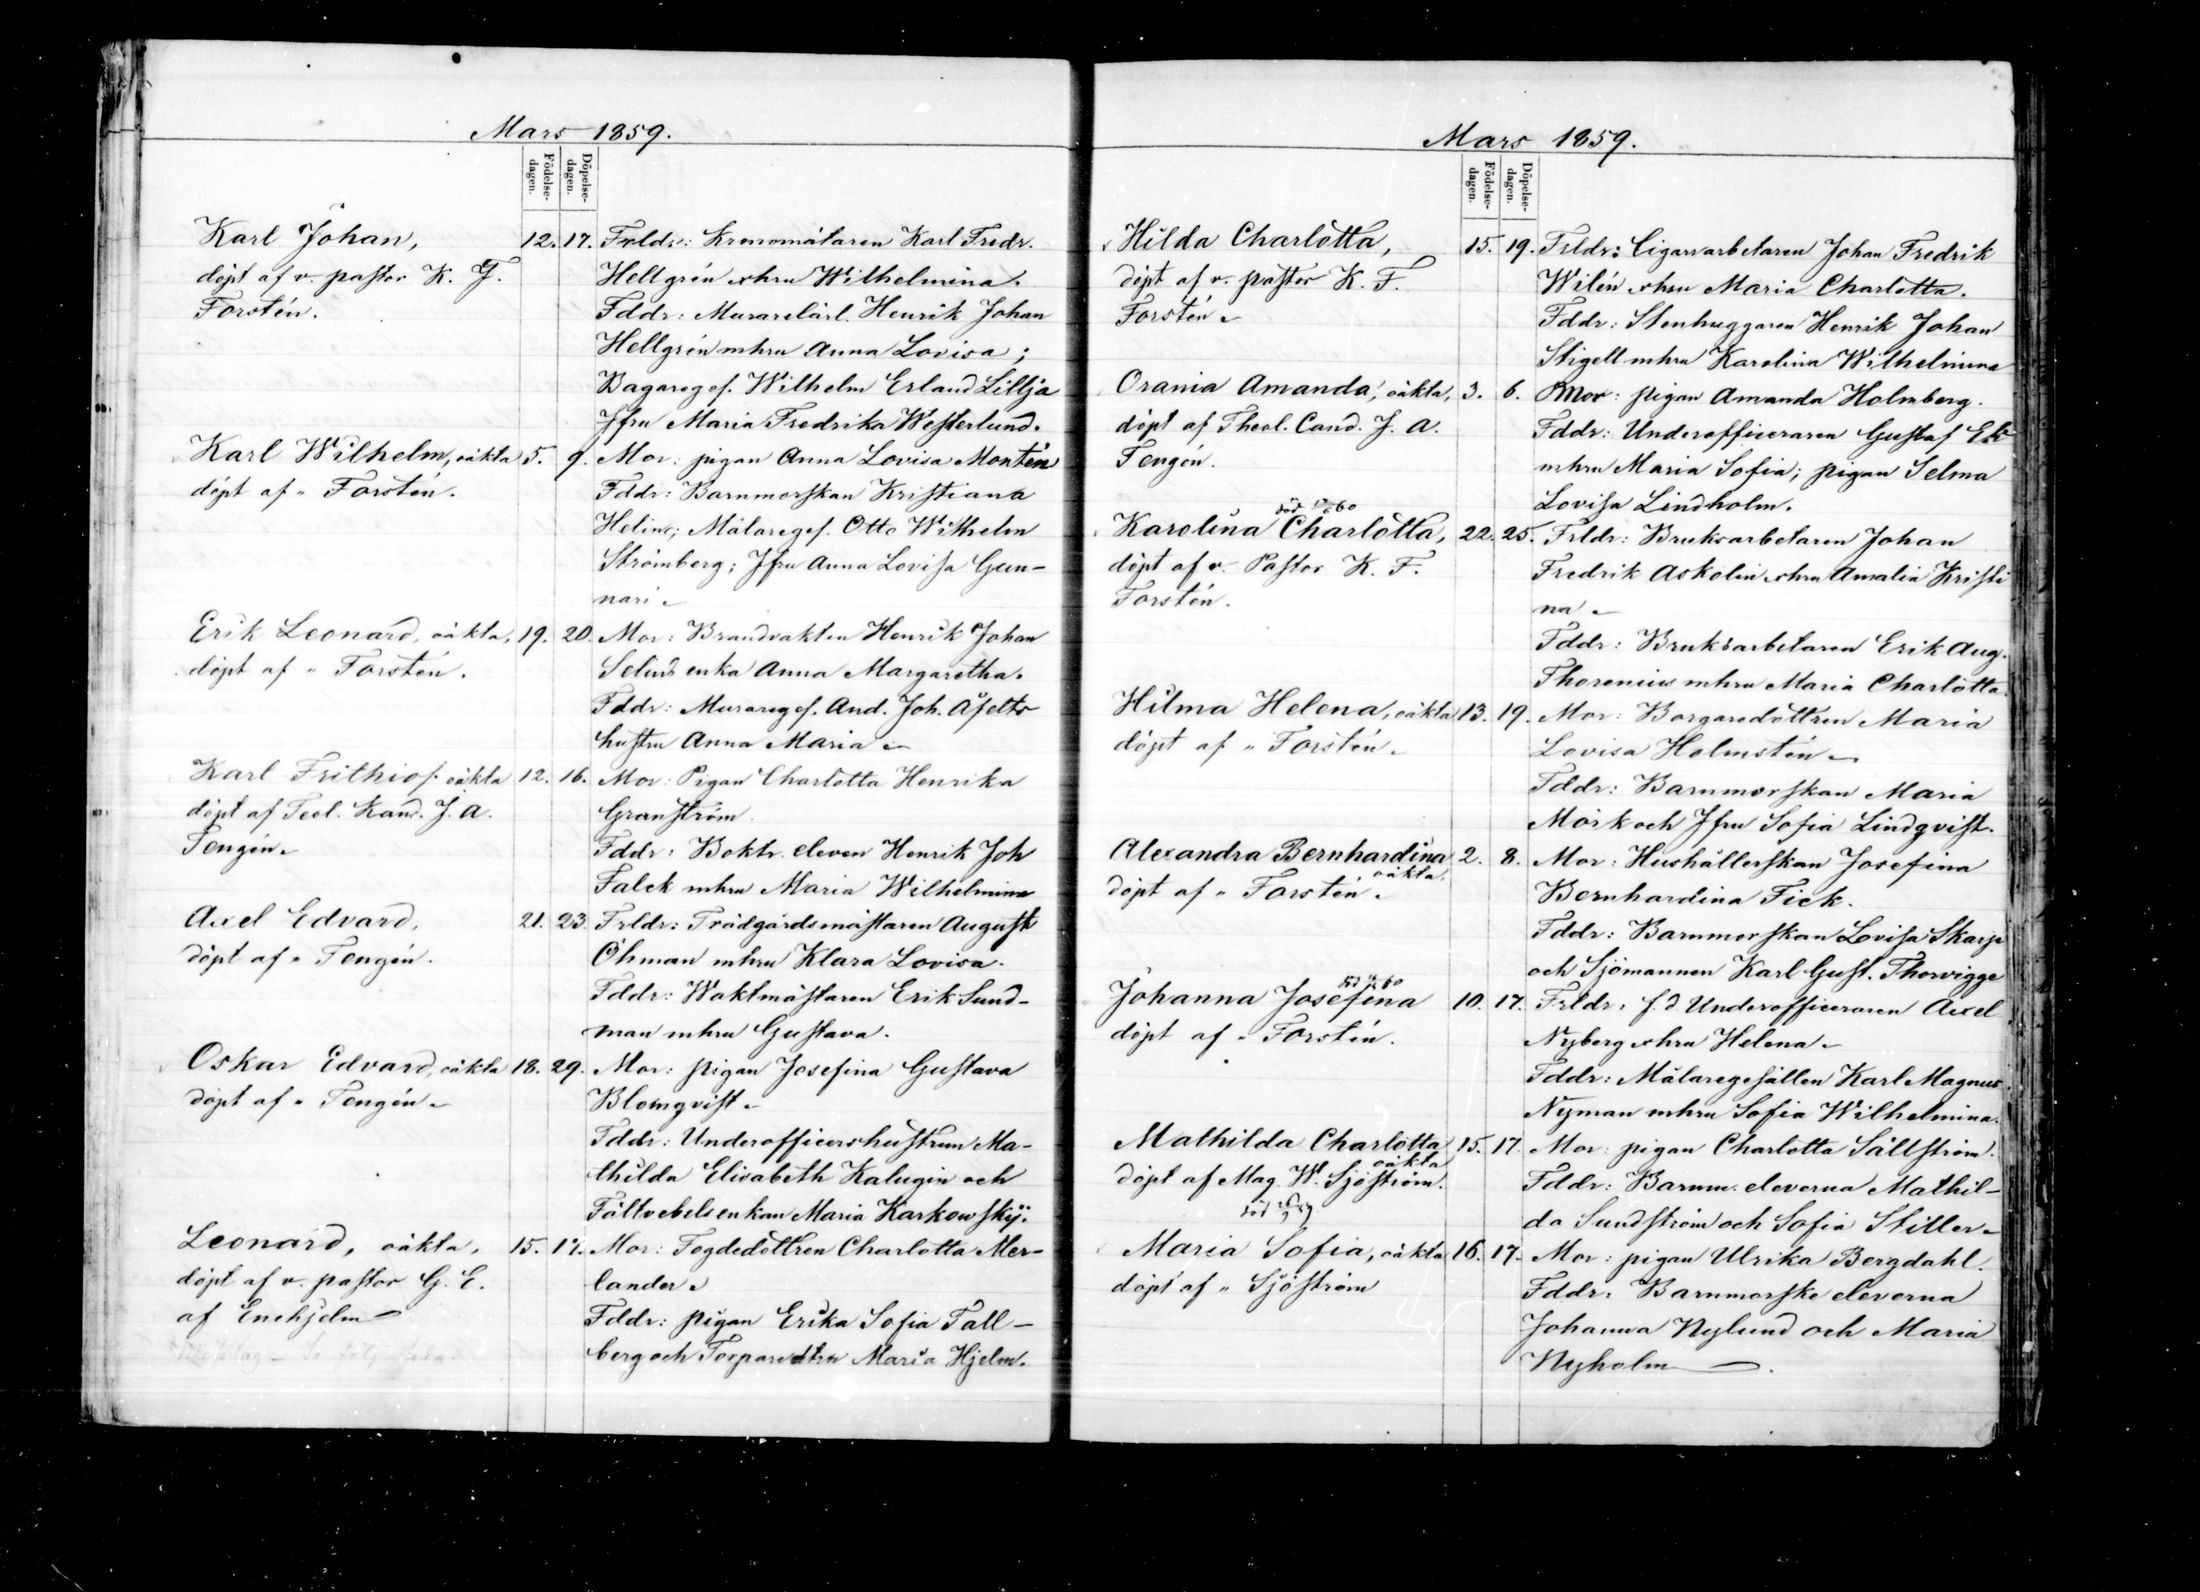 Mars 1859.
Födelse-dagen.
Döpelse-dagen.
Karl Johan,
döpt af v. pastor K. F.
Forstén.
12. 17. Frldr: Kronomätaren Karl Fredr.
Hellgrén o hru Wilhelmina.
Fddr: Murarelärl. Henrik Johan
Hellgrén mhru Anna Lovisa;
Bagareges. Wilhelm Erland Lillja
Jfru Maria Fredrika Westerlund.
Karl Wilhelm, oäkta
döpt af " Forstén.
5. 9. Mor: pigan Anna Lovisa Montén
Fddr: Barnmorskan Kristiana
Helin; Målareges. Otto Wilhelm
Strömberg; Jfru Anna Lovisa Gun-
nari
Erik Leonard, oäkta,
döpt af " Forstén.
19. 20. Mor: Brandvakten Henrik Johan
Selins enka Anna Margaretha.
Fddr: Murareges. And. Joh. Åfelts
hustru Anna Maria
Karl Frithiof oäkta
döpt af Teol. Kand. J. A.
Tengén.
12. 16. Mor: Pigan Charlotta Henrika
Granström.
Fddr: Boktr. eleven Henrik Joh
Falck mhru Maria Wilhelmina
Axel Edvard,
döpt af " Tengén.
21. 23. Frldr: Trädgårdsmästaren August
Öhman mhru Klara Lovisa.
Fddr: Waktmästaren Erik Sund-
man mhru Gustava.
Oskar Edvard, oäkta
döpt af " Tengén
18. 29. Mor: pigan Josefina Gustava
Blomqvist
Fddr: Underofficershustrun Ma-
thilda Elisabeth Kalugin och
Fältvebelsenkan Maria Karkowskij.
Leonard, oäkta,
döpt af v. pastor G. E.
af Enehjelm
15. 17. Mor: Fogdedottren Charlotta Mer-
lander
Fddr: pigan Erika Sofia Tall-
berg och Torparedtrn Maria Hjelm.
Mars 1859.
Födelse-dagen.
Döpelse-dagen.
Hilda Charlotta,
döpt af v. pastor K. F.
Forstén
15. 19. Frldr: Cigarrarbetaren Johan Fredrik
Wilén o hru Maria Charlotta.
Fddr: Stenhuggaren Henrik Johan
Stigell mhru Karolina Wilhelmina
Orania Amanda, oäkta,
döpt af Theol. Cand. J. A.
Tengén.
3. 6. Mor: pigan Amanda Holmberg.
Fddr: Underofficeraren Gustaf Ek
mhru Maria Sofia; pigan Selma
Lovisa Lindholm.
död 60
Karolina Charlotta,
döpt af v. Pastor K. F.
Forstén.
22. 25. Frldr: Bruksarbetaren Johan
Fredrik Askolin o hru Amalia Kristi
na
Fddr: Bruksarbetaren Erik Aug.
Thorenius mhru Maria Charlotta.
Hilma Helena, oäkta
döpt af " Forstén
13. 19. Mor: Borgaredottren Maria
Lovisa Holmstén
Fddr: Barnmorskan Maria
Mörk och Jfru Sofia Lindqvist.
Alexandra Bernhardina
oäkta.
döpt af " Forstén.
2. 8. Mor: Hushållerskan Josefina
Bernhardina Fick.
Fddr: Barnmorskan Lovisa Skarp
och Sjömannen Karl Gust. Thorvigge
död 60
Johanna Josefina
döpt af " Forstén.
10. 17. Frldr: f.d Underofficeraren Axel
Nyberg o hru Helena
Fddr: Målaregesällen Karl Magnus
Nyman mhru Sofia Wilhelmina.
Mathilda Charlotta
oäkta
döpt af Mag. W. Sjöström.
15. 17. Mor: pigan Charlotta Sällström.
Fddr: Barnm. eleverna Mathil-
da Sundström och Sofia Stiller
död 59.
Maria Sofia, oäkta
döpt af " Sjöström
16. 17. Mor: pigan Ulrika Bergdahl.
Fddr: Barnmorske eleverna
Johanna Nylund och Maria
Nyholm